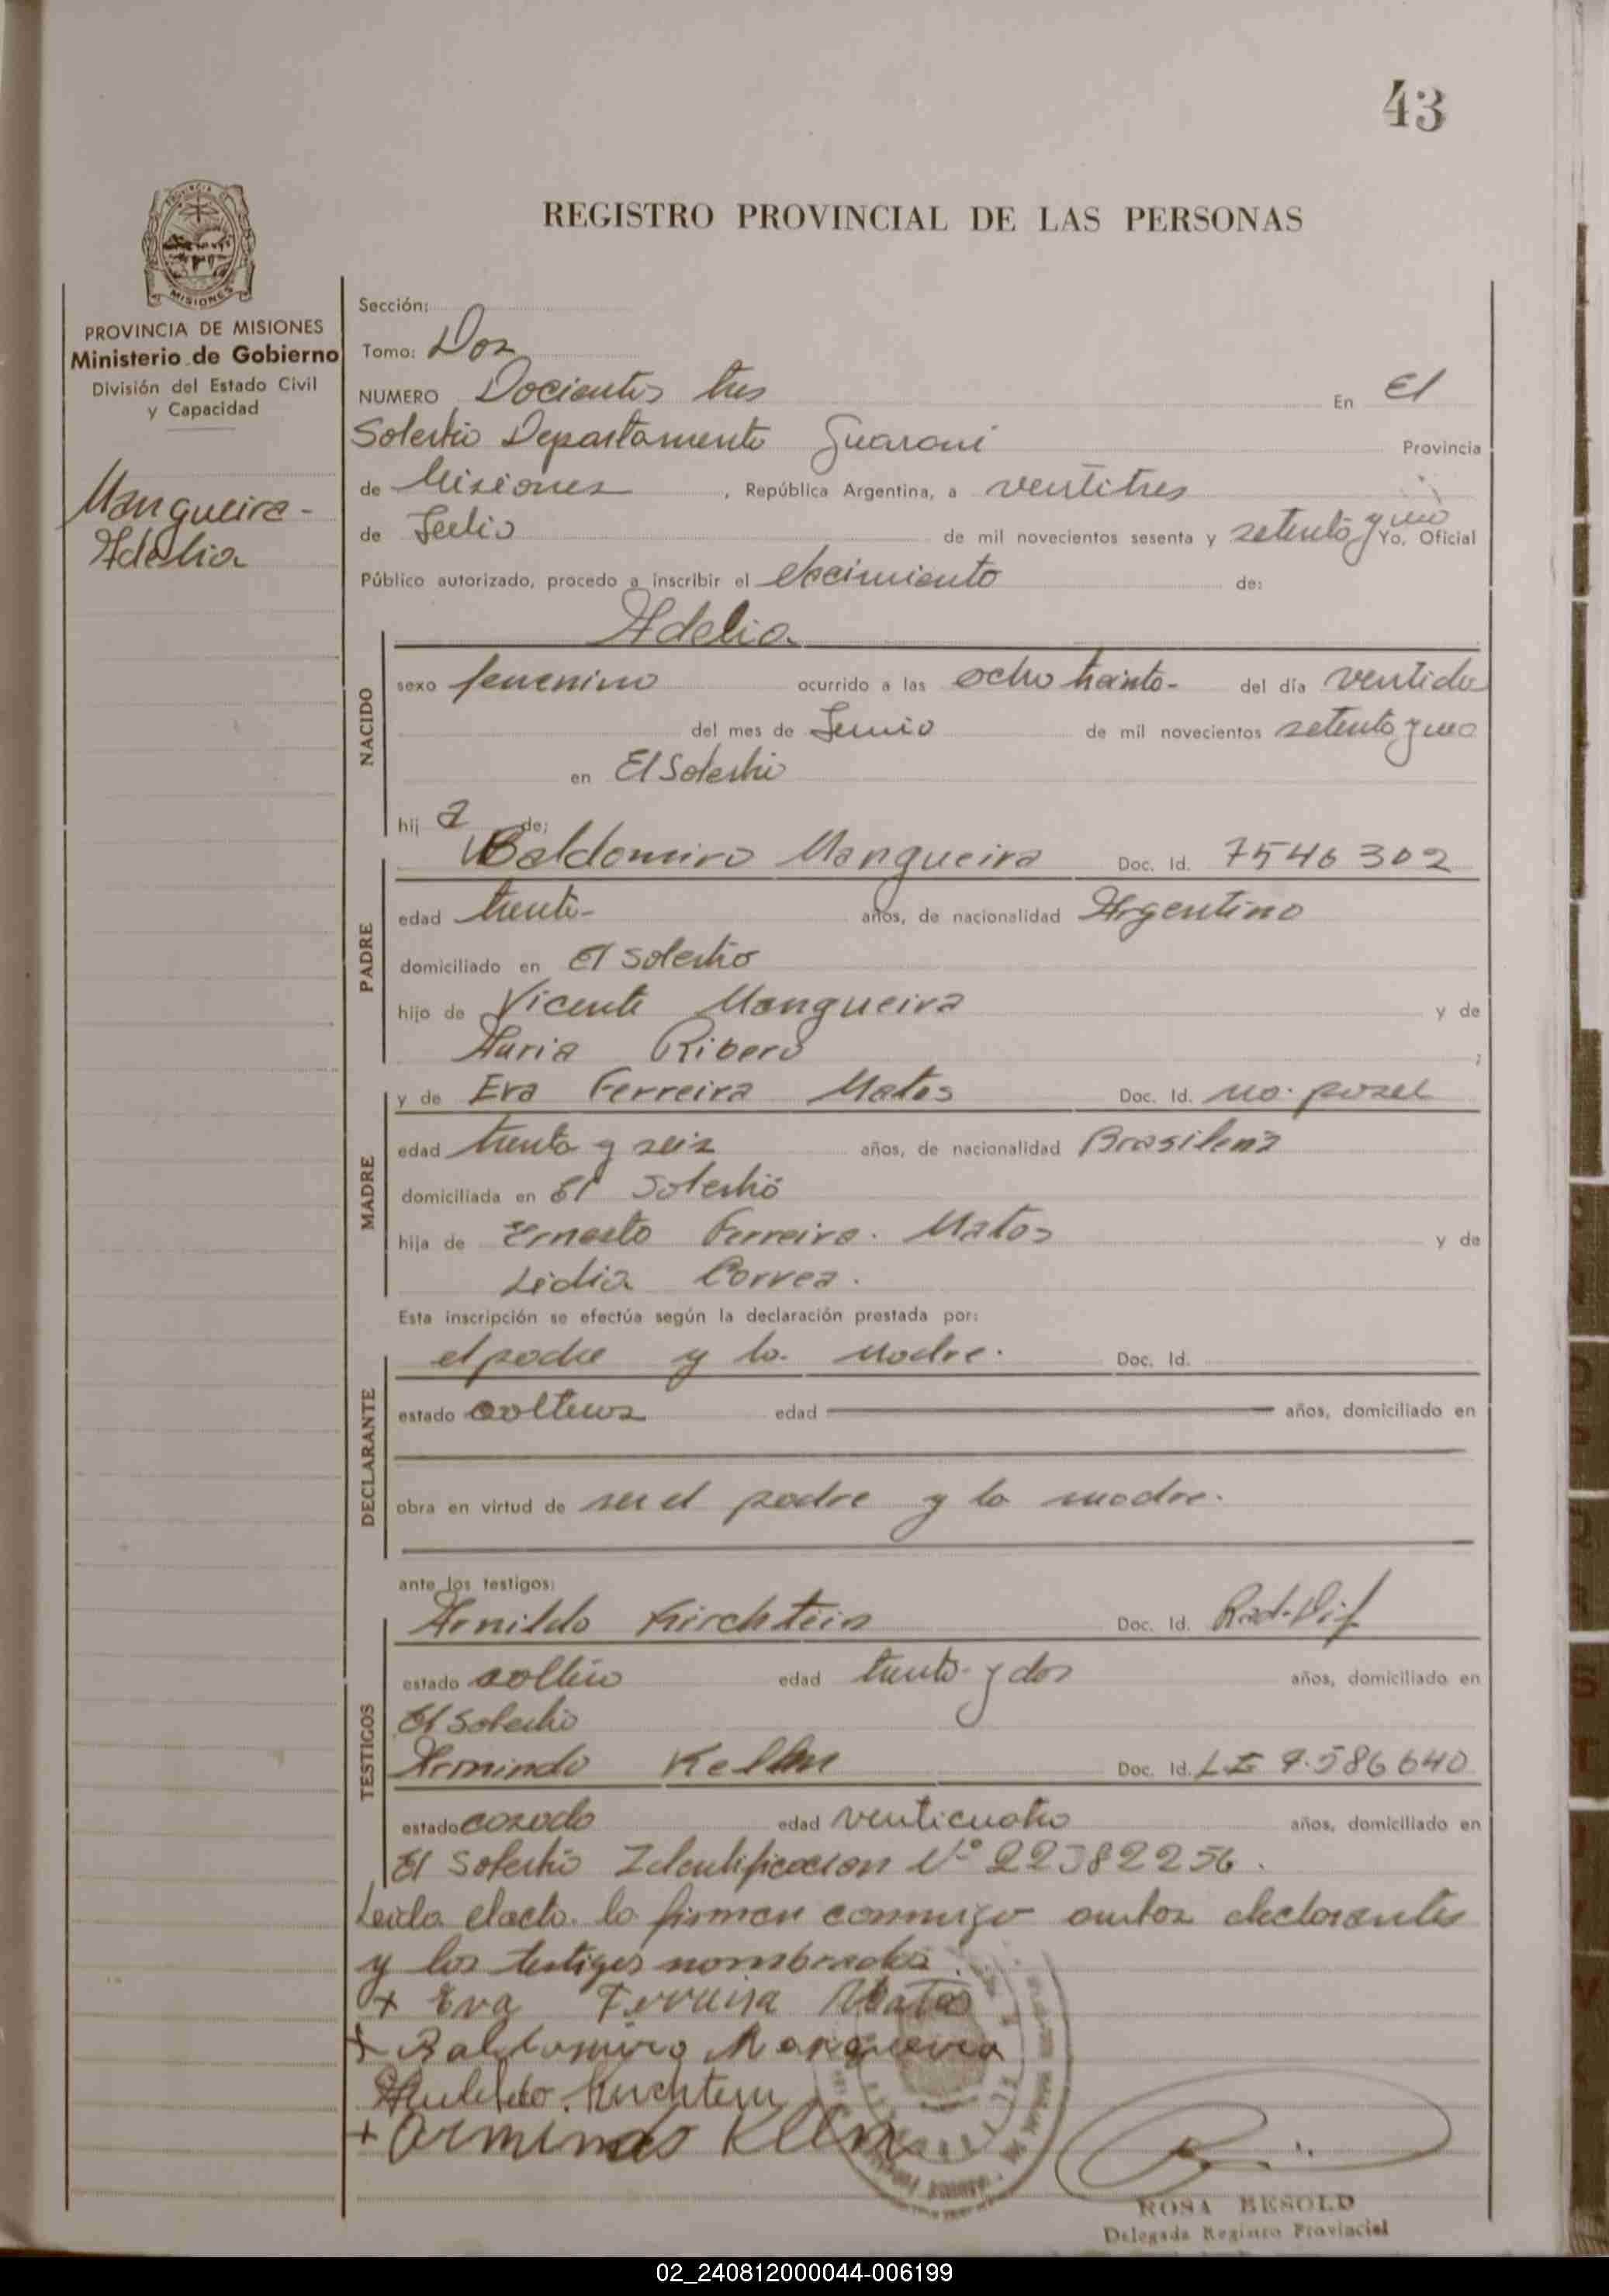 43
REGISTRO PROVINCIAL DE LAS PERSONAS
PROVINCIA
MISIONES
PROVINCIA DE MISIONES
Ministerio de Gobierno
División del Estado Civil
y Capacidad
Mangueira -
Adelia
Sección:
Tomo: Dos
NUMERO Docientos tres En El
Soberbio Departamento Guarani Provincia
de Misiones, República Argentina, a ventitres
de Julio de mil novecientos sesenta y setenta y uno Yo, Oficial
Público autorizado, procedo a inscribir el Nacimiento de:
Adelia
NACIDO
sexo femenino ocurrido a las ocho treinta- del día ventidos
del mes de Junio de mil novecientos setenta y uno
en El Soberbio
hij a de:
Baldomiro Mangueira Doc. Id. 7546302
PADRE
edad trenta- años, de nacionalidad Argentino
domiciliado en El Soberbio
hijo de Vicente Mangueira y de
Maria Ribero ;
MADRE
y de Eva Ferreira Matos Doc. Id. no posee
edad trenta y seis años, de nacionalidad Brasilena
domiciliada en El Soberbio
hija de Ernesto Ferreira. Matos y de
Lidia Correa.
Esta inscripción se efectúa según la declaración prestada por:
DECLARANTE
el padre y la madre. Doc. Id.
estado solteros edad años, domiciliado en
obra en virtud de ser el padre y la madre.
ante los testigos:
TESTIGOS
Arnildo Kirchtein Doc. Id.
estado soltero edad trenta y dos años, domiciliado en
El Soberbio
Armindo Kelln Doc. Id. LE 7.586640
estado casado edad venticuatro años, domiciliado en
El Soberbio Identificacion Nº 22382256.
Leida elacta. la firman conmigo ambos declarantes
y los testigos nombrados.
+ Eva Ferreira Matos
+ Baldomiro Mangueira
Kirchtein
+ Armindo Kelln
ROSA BESOLD
Delegada Registro Provincial
02_240812000044-006199